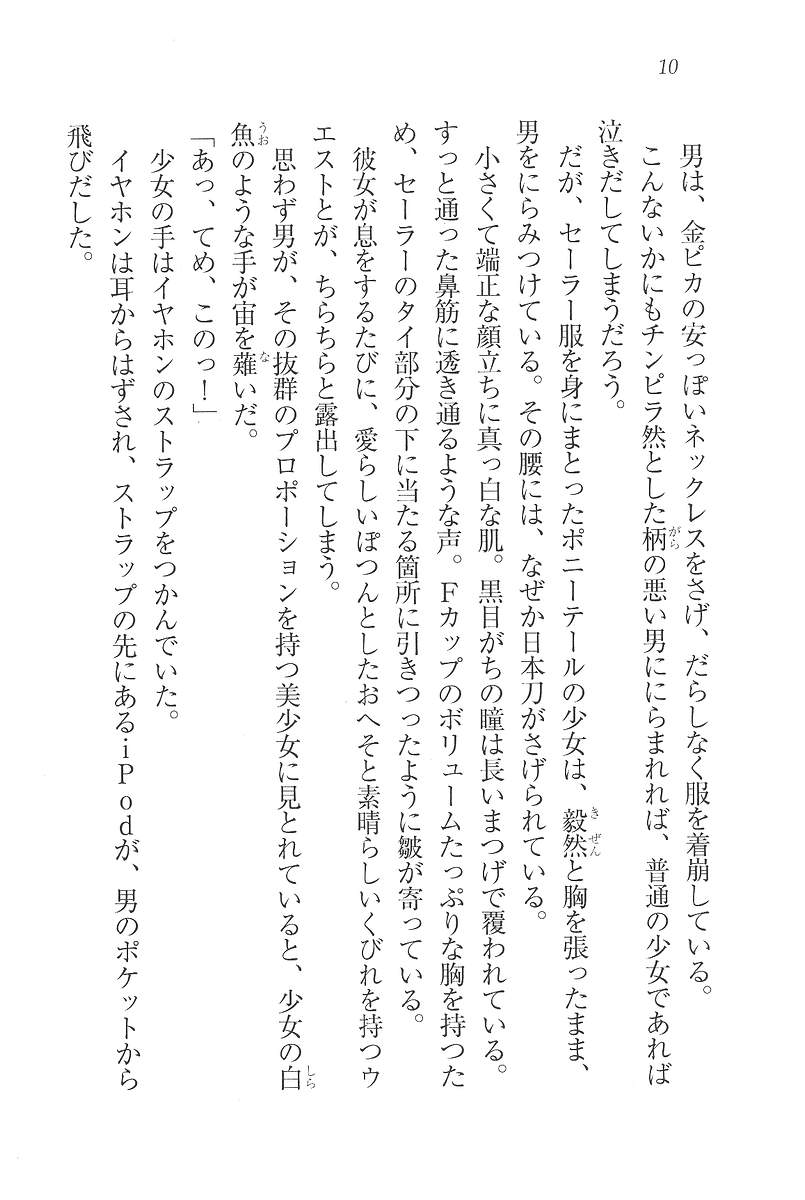 10
男は、金ピカの安っぽいネックレスをさげ、だらしなく服を着崩している。
こんないかにもチンピラ然とした柄の悪い男ににらまれれば、普通の少女であれば
泣きだしてしまうだろう。
だが、セーラー服を身にまとったポニーテールの少女は、毅然と胸を張ったまま、
男をにらみつけている。その腰には、なぜか日本刀がさげられている。
小さくて端正な顔立ちに真っ白な肌。黒目がちの瞳は長いまつげで覆われている。
すっと通った鼻筋に透き通るような声。Fカップのボリュームたっぷりな胸を持つた
め、セーラーのタイ部分の下に当たる箇所に引きつったように皺が寄っている。
彼女が息をするたびに、愛らしいぽつんとしたおへそと素晴らしいくびれを持つウ
エストとが、ちらちらと露出してしまう。
思わず男が、その抜群のプロポーションを持つ美少女に見とれていると、少女の白
魚のような手が宙を薙いだ。
「あっ、てめ、このっ！」
少女の手はイヤホンのストラップをつかんでいた。
イヤホンは耳からはずされ、ストラップの先にあるiPodが、男のポケットから
飛びだした。